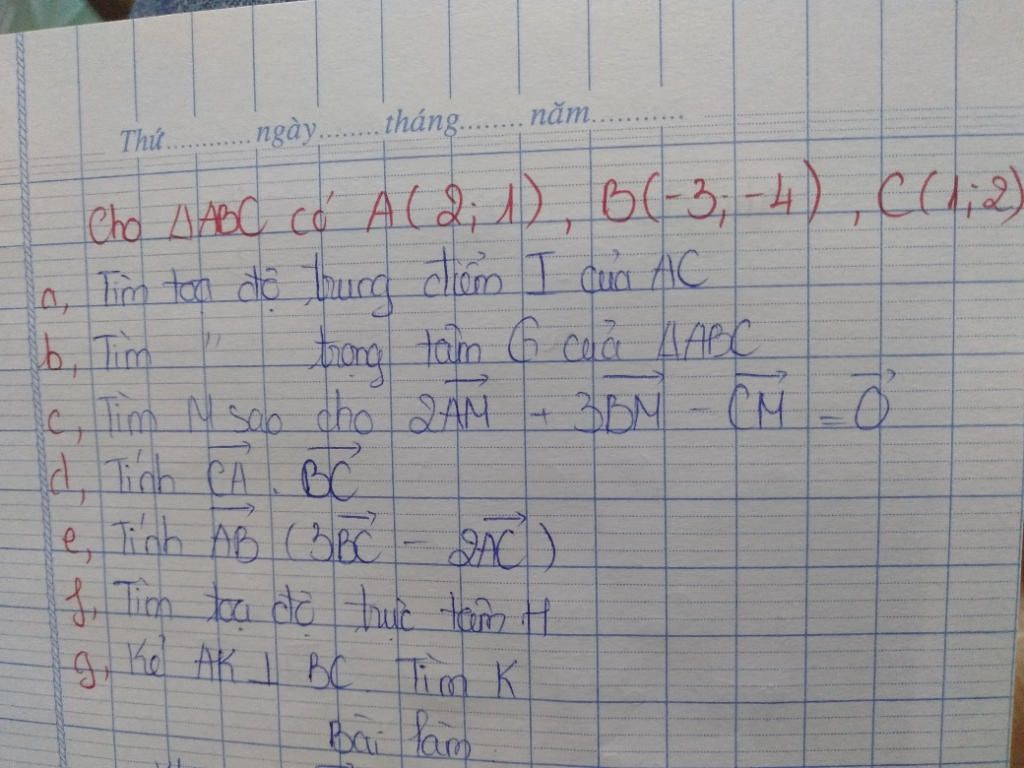 Thứ...........ngày........tháng........năm...........
Cho ΔABC có A(2;1), B(-3;-4), C(1;2)
a, Tìm toạ độ trung điểm I của AC
b, Tìm " trọng tâm G của ΔABC
c, Tìm M sao cho 2AM⃗ + 3BM⃗ - CM⃗ = O⃗
d, Tính CA⃗ . BC⃗
e, Tính AB⃗ (3BC⃗ - 2AC⃗)
f, Tìm toạ độ trực tâm H
g, Kẻ AK ⊥ BC. Tìm K
Bài làm